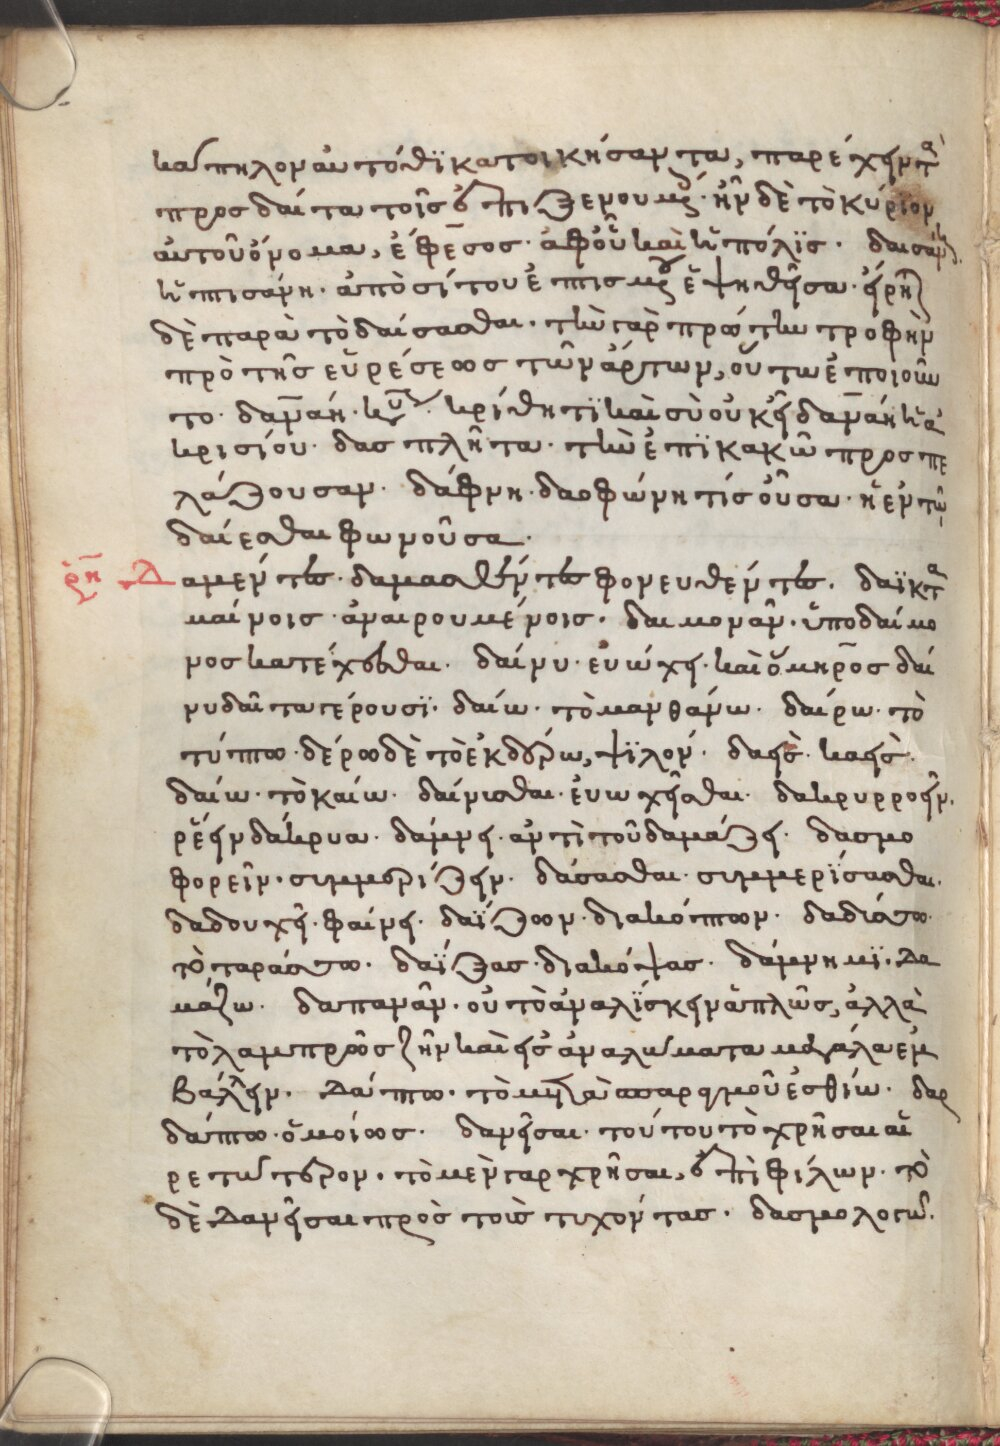 κάπηλον αὐτόθϊ κατοικήσαντα, παρέχειν τὰ
προς δαίτα τοῖς ἐπιξενουμέ· ἦν δὲ τὸ κύριον
αὐτοῦ ὄνομα, ἔφεσος· ἀφοῦ καὶ ἡ πόλϊς. δαισάνη
ἡ πισάνη· ἀπὸ σίτου ἐπισμοῦ ἑψηθεῖσα· εἴρη
δὲ παρὰ τὸ δαίσασθαι. τὴν γὰρ πρώτην τροφὴν
πρὸ τῆς εὑρέσεως τῶν ἄρτων, οὕτω ἐποιοῦν
το· δαμάη· κύ. κρίθητϊ καὶ σὺ οὐκ ῆ δαμάη ἡ ἀ
κρισίου· δασπλῆτα. τὴν ἐπϊκακῶ προσπε
λάζουσαν. δάφνη· δαοφώνη τίς οὖσα· ἡ ἐν τῶ
δαίεσθαι φωνοῦσα.
ῥη Δαμέντες· δαμασθέντες φονευθέντες. δαϊκτα
μαίνοις· ἀναιρουμένοις. δαιμονᾶν. ὑποδαίμο
νος κατέχεσθαι. δαίνυ· εὐώχει· καὶ ὅμηρος δαί
νυ δαῖτα γέρουσϊ. δαίω· τὸ μανθάνω. δαίρω· τὸ
τύπτω· δέρω δὲ τὸ ἐκδέρω, ψϊλόν. δαεὶς· καεὶς.
δαίω· τὸ καίω. δαίνισθαι· εὐωχεῖσθαι. δακρυρροεῖν.
ῥέειν δάκρυα. δάμνει· ἀντὶ τοῦ δαμάζει. δασμο
φορεῖν. συμμερίζειν. δάσασθαι· συμμερΐσασθαι.
δαδουχεῖ· φαίνει. δαΐζων· διακόπτων. δαδιάττω
τὸ ταράσσω. δαΐξας· διακόψας. δάμνημϊ. δα
μάζω. δαπανᾶν. οὐ τὸ ἀναλϊσκειν ἁπλῶς, ἀλλὰ
τὸ λαμπρῶς ζῆν καὶ εἰς ἀναλώματα μεγάλα ἐμ
βάλλειν. Δάπτω. τὸ μετὰ σπαραγμοῦ ἐσθίω. δαρ
δάπτω· ὁμοίως. δανεῖσαι. τούτου τὸ χρῆσαι αἱ
ρετώτερον. τὸ μὲν γαρ χρῆσαι, ἐπὶ φίλων. τὸ
δὲ δανεῖσαι πρὸς τοὺς τυχόντας. δασμολογῶ.